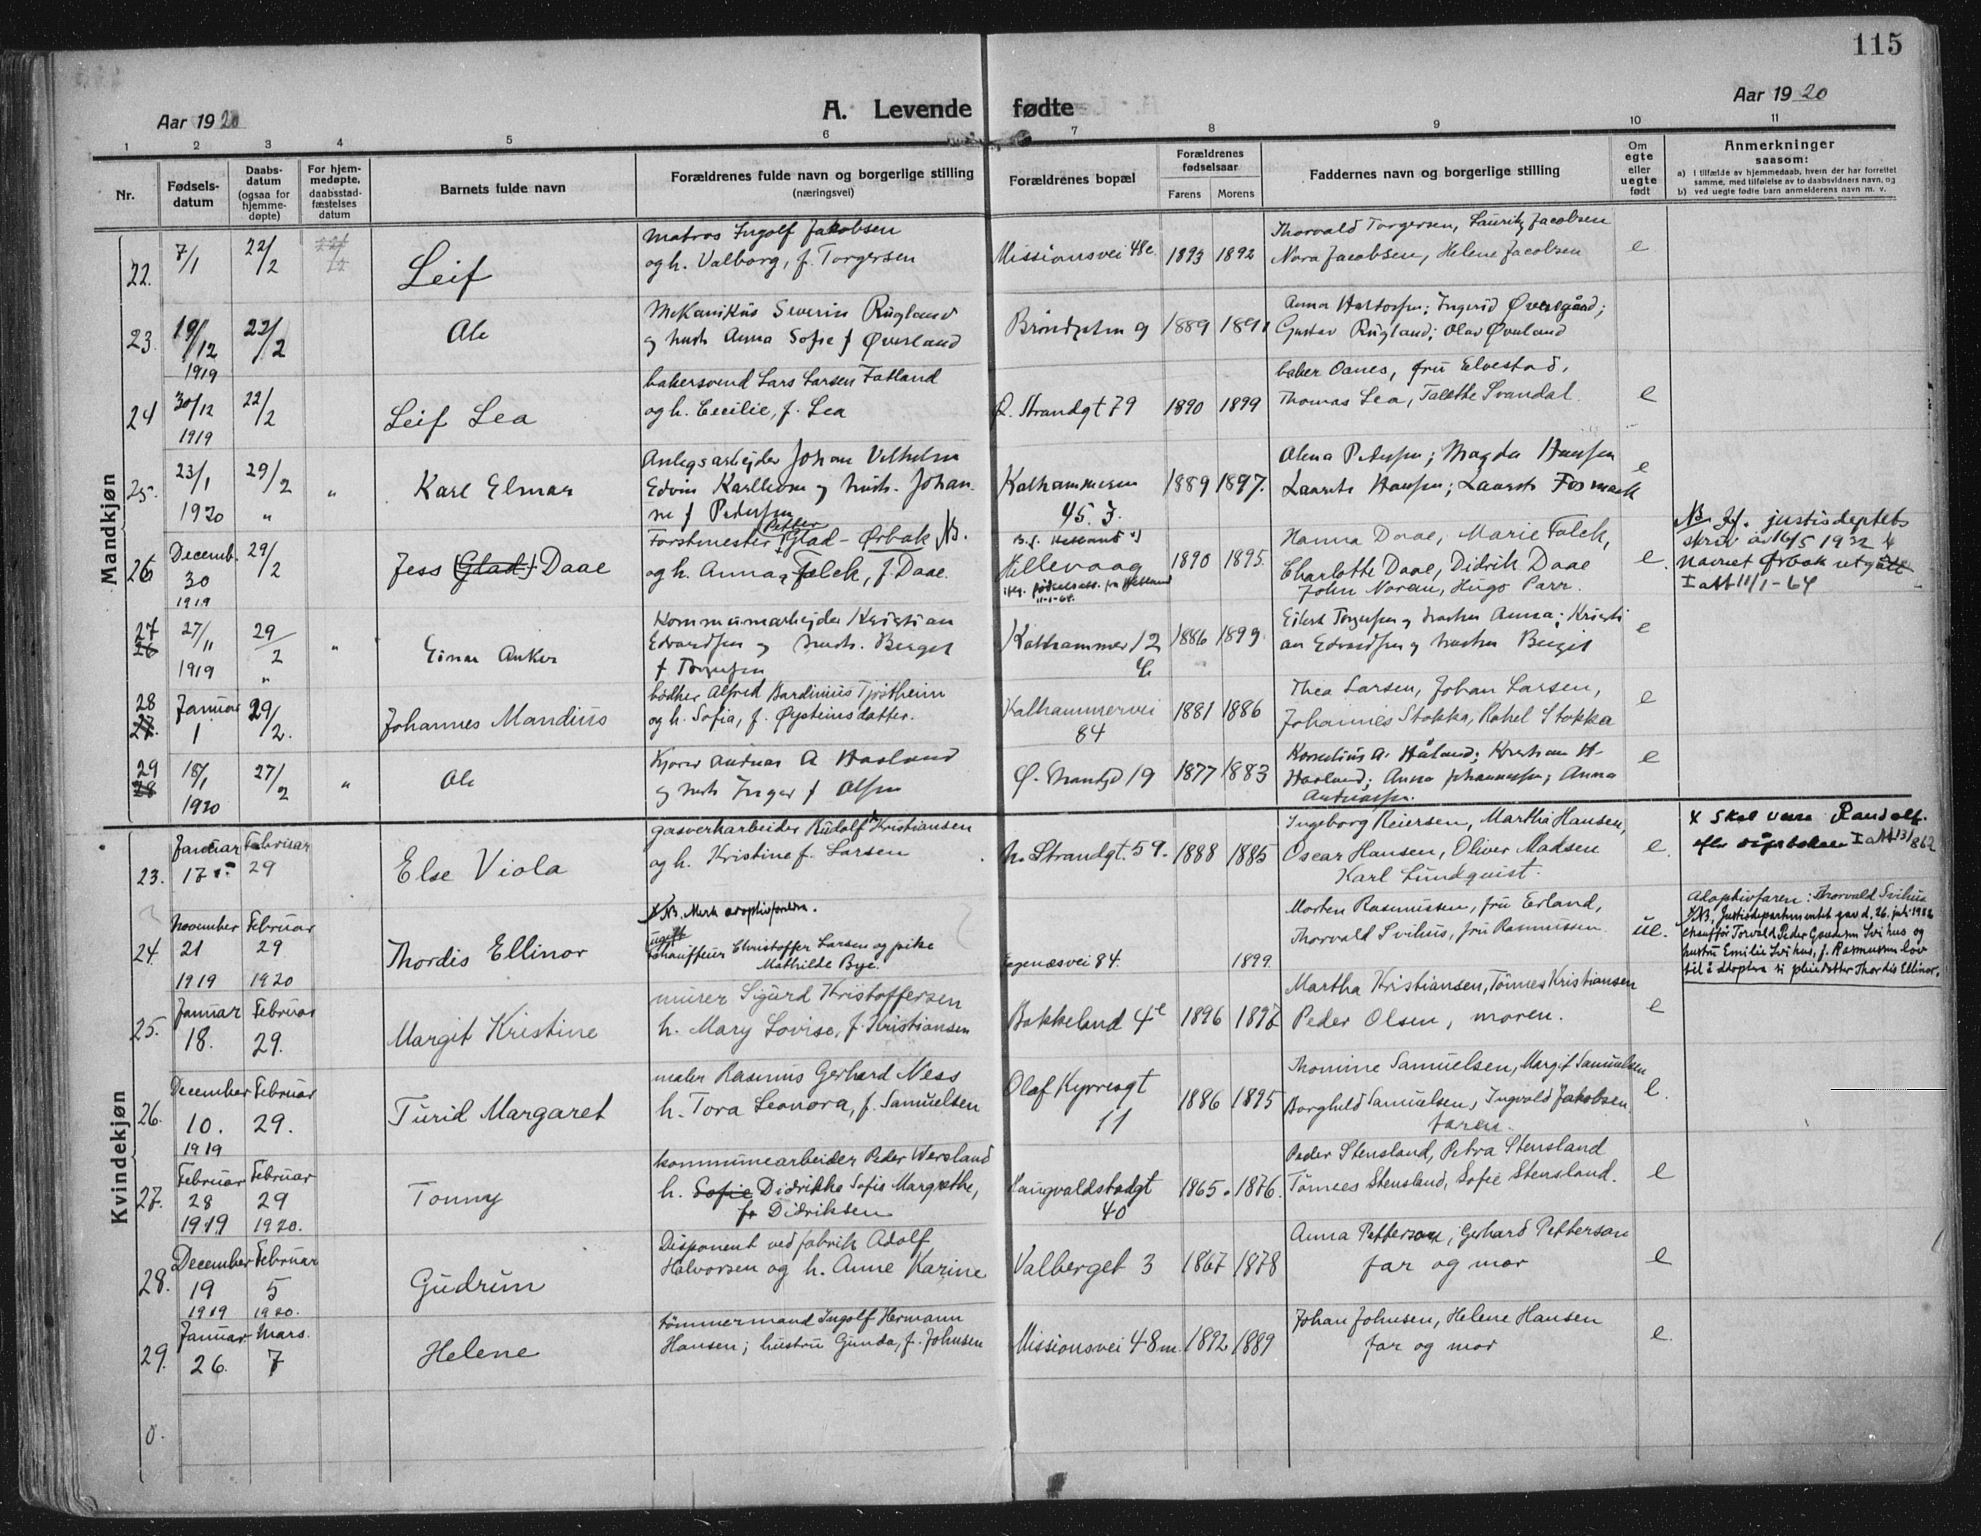 115
Aar 1920
A. Levende fødte
Aar 1920
1 2 3 4 5 6 7 8 9 10 11
Nr.
Fødsels-
datum
Daabs-
datum
(ogsaa for
hjemme-
døpte)
For hjem-
medøpte,
daabsstad-
fæstelses
datum
Barnets fulde navn
Forældrenes fulde navn og borgerlige stilling
(næringsvei)
Forældrenes bopæl
Forældrenes
fødselsaar
Farens Morens
Faddernes navn og borgerlige stilling
Om
egte
eller
uegte
født
Anmerkninger
saasom:
a) I tilfælde av hjemmedaab, hvem der har forrettet
samme, med tilføielse av to daabsvidners navn, og
b) ved uegte fødte barn anmelderens navn m. v.
Mandkjøn
22. 7/1 22/2 Leif
matros Ingolf Jakobsen
og h. Valborg, f. Torgersen
Missionsvei 48c 1893 1892
Thorvald Torgersen, Lauritz Jacobsen
Nora Jacobsen, Helene Jacobsen
e
23. 19/12 1919 22/2 Ole
Mekanikus Severin Rugland
og hust. Anna Sofie f Øverland
9 1889 1891
Gustav Rugland; Olav Øverland
24 30/12 1919 22/2 Leif Lea
bakersvend Lars Larsen Fatland
og h. Cecilie, f. Lea
Ø. Strandgt 79 1890 1899
baker Oanes, fru Elvestad,
Thomas Lea, Talette Svandal.
e
25. 23/1 1920 29/2 " Karl Elmar
Anlegsarbejder Johan Vilhelm
Edvin Karlsson og hust. Johan-
ne f Pedersen
Kalhammeren
45. J.
1889 1897.
Olena Petersen; Magda Hansen
Laurits Hansen; Laurits Fosmark
e
26 Decemb. 30 1919 29/2 Jess (Glad) Daae
Forstmester Petter Glad - Ørbak NB.
og h. Anna Falck, f. Daae.
Hillevaag
1890 1895.
Hanna Daae, Marie Falck,
Charlotte Daae, Didrik Daae
John Noran, Hugo Parr.
e.
NB. Jf. justisdeptets
skriv av 16/5 1922 4
navnet Ørbak utgått
I att 11/1-64
27 26 27/11 1919 29/2 " Einar Anker
Kommunarbejder Kristian
Edvardsen og hust. Berget
f Torgersen
Kalhammer 12
1886 1899.
Eilert Torgersen og hustru Anna; Kristi
an Edvardsen og hustru Bergit
e
28 27. Januar 1 29/2. Johannes Mandius
bødker Alfred Bardinius Tjøstheim
og h. Sofia, f. Øysteinsdatter.
Kalhammervei
84
1881 1886
Thea Larsen, Johan Larsen,
Johannes Stokka, Rakel Stokka
e
29 28 18/1 1920 27/2 " Ole
Kjører Antnas A Haaland
og hust Inger f Olsen
Ø. Strandgt 19 1877 1883
Kornelius A. Håland; Kristian H-
Haaland; Anna Johannessen; Anna
Antnassen.
e
Kvindekjøn
23. Januar 17 Februar 29 Else Viola
gasverkarbeider Rudolf x Kristiansen
og h. Kristine f. Larsen
N. Strandgt. 59. 1888 1885
Ingeborg Reiersen, Martha Hansen,
Oscar Hansen, Oliver Madsen
Karl Lundquist.
e.
x Skal være Randolf
I att 13/8 62
24. November 21 1919 Februar 29 1920 Thordis Ellinor
NB. Merk adoptivforeldre.
ugift
Chauffeur Christoffer Larsen og pike
Mathilde Bye.
Egenæsvei 84. 1899
Morten Rasmussen, fru Erland,
Thorvald Svihus, fru Rasmussen
ue.
Adoptivfaren: Thorvald Svihus
NB. Justisdepartementet gav d. 26. juli 1922
chauffør Torvald Peder Svihus og
hustru Emilie Svihus, f. Rasmussen lov
til å adoptere si pleiedatter Thordis Ellinor.
25. Januar 18. Februar 29. Margit Kristine
murer Sigurd Kristoffersen
h. Mary Lovise, f. Kristiansen
Bakkeland 4e 1896 1897
Martha Kristiansen, Tønnes Kristiansen
Peder Olsen, moren.
e
26. December 10. 1919 Februar 29. Turid Margaret
maler Rasmus Gerhard Ness
h. Tora Leonora, f. Samuelsen
Olaf Kyrresgt
11
1886 1895
Thomine Samuelsen, Margit Samuelsen
Borghild Samuelsen, Ingvald Jakobsen
faren.
e.
27. Februar 28 1919 Februar 29 1920. Tonny
kommunearbeider Peder Wersland
h. Sofie Didrikke Sofie Margrethe,
f. Didriksen
Haugvaldstadgt
40
1865. 1876.
Peder Stensland, Petra Stensland
Tønnes Stensland, Sofie Stensland.
e
28. December 19 1919 Februar 5 1920. Gudrun
Disponent ved fabrik Adolf
Halvorsen og h. Anne Karine
Valberget 3 1867 1878
Anna Petterson, Gerhard Petterson
far og mor
e
29. Januar 26. Mars. 7 Helene
tømmermand Ingolf Hermann
Hansen; hustru Gunda, f. Johnsen
Missionsvei 48m. 1892 1889
Johan Johnsen, Helene Hansen
far og mor
e.
0.